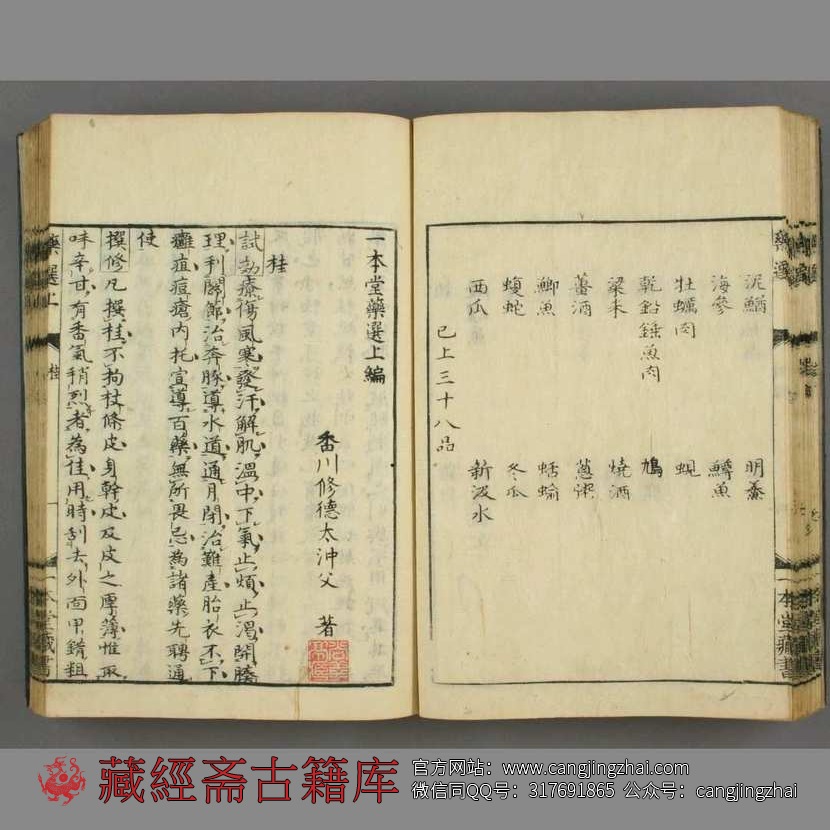 藥選
泥鰌
明養
海參
鱒魚
牡蠣肉
蜆
乾鉛錘魚肉
鳩
粱米
燒酒
薑酒
蔥粥
鯽魚
蛞蝓
蝮蛇
冬瓜
西瓜
新汲水
已上三十八品
一本堂藏書
一本堂藥選上編
香川修德太沖父 著
桂
試効療傷風寒發汗解肌溫中下氣止煩止渴開腠
理利關節治奔豚導水道通月閉治難產胎衣不下
癰疽痘瘡內托宣導百藥無所畏忌為諸藥先聘通
使
撰修凡撰桂不拘枝條皮身幹皮及皮之厚薄惟取
味辛甘有香氣稍烈者為佳用時刮去外面甲錯粗
藥選上
桂
一本堂藏書
藏經斋古籍库
官方网站：www.cangjingzhai.com
微信同QQ号：317691865 公众号：cangjingzhai